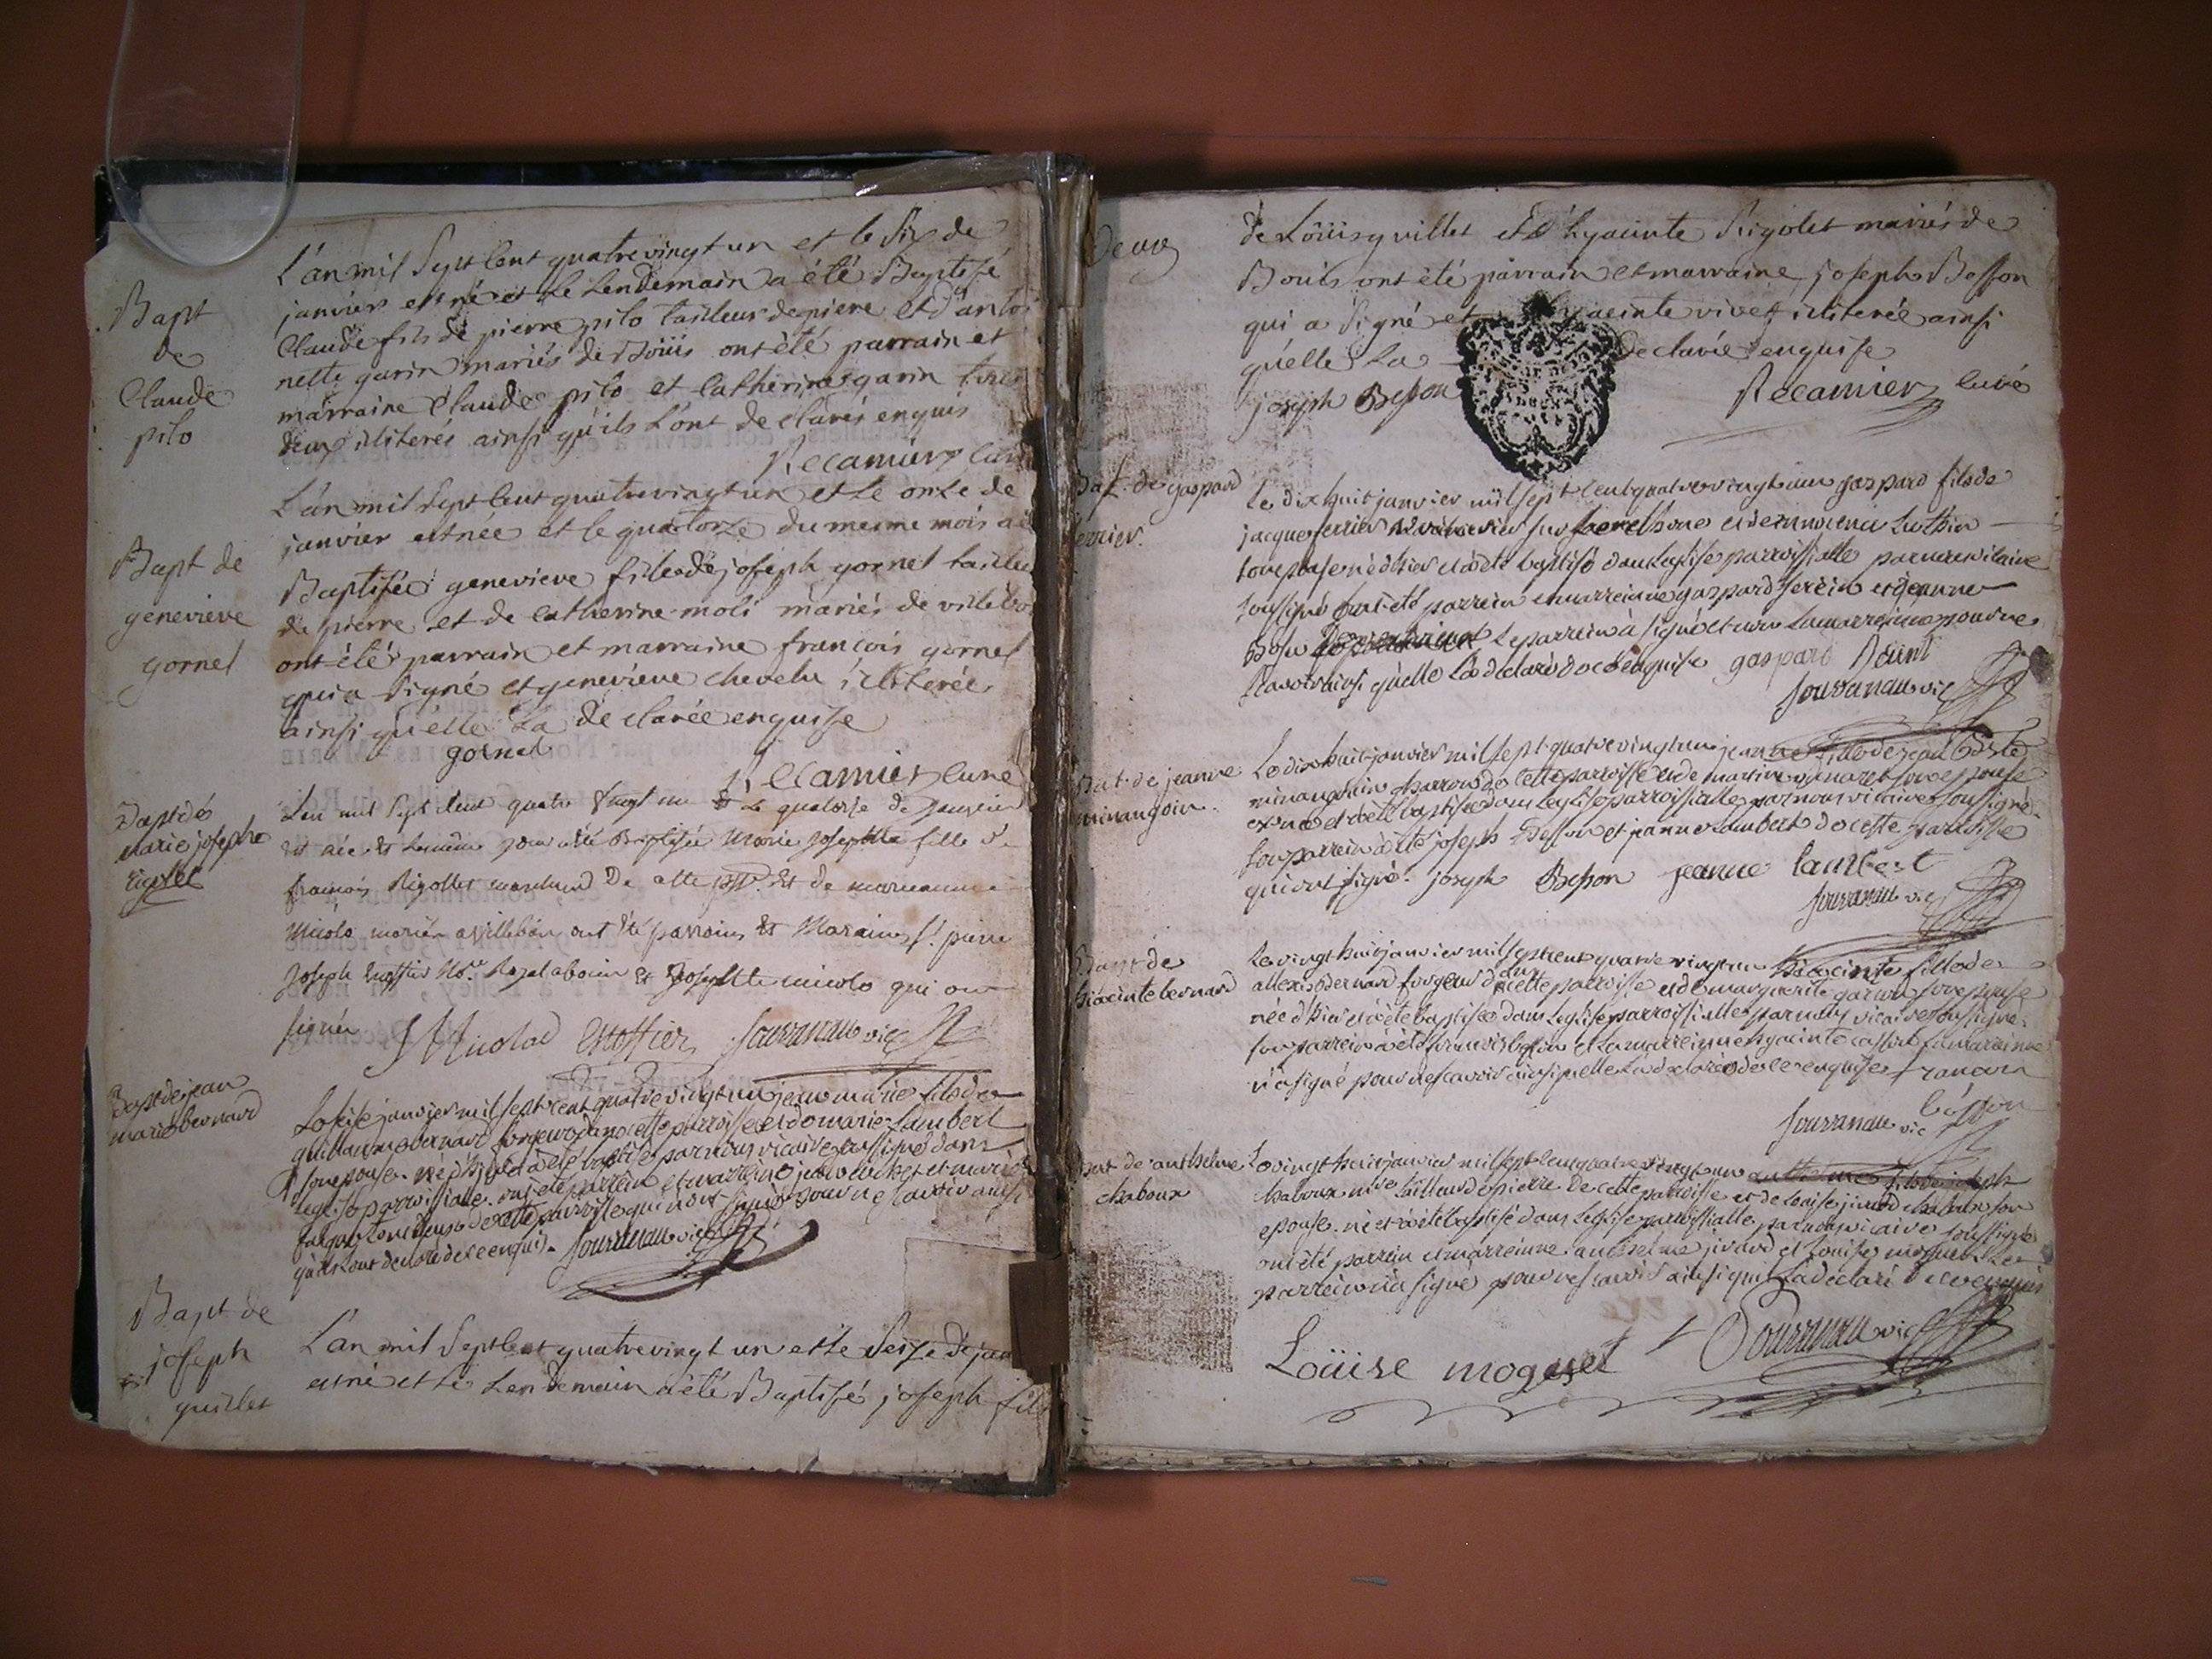 Bapt
de
Claude
pilo
L'an mil Sept Cent quatre vingt un et le Six de
janvier est né et le Lendemain a été Baptisé
Claude fils de pierre pilo tailleur de piere et d'antoi
nette garin mariés de Boüis ont été parrain et
marraine Claude pilo et Catherine garin tous
deux illiterés ainsi qu'ils L'ont de clarés enquis
Recamier Curé
Bapt de
genevieve
gornel
L'an mil Sept Cent quatre vingt un et Le onze de
janvier est née et le quatorze du meme mois a été
Baptisée genevieve fille de joseph gornel tailleu
de pierre et de Catherine moli mariés de villebo
ont été parrain et marraine françois gornel
qui a Signé et genevieve chevelu illiterée
ainsi qu'elle La de clarée enquise
gornel
Recamier Curé
Bapt de
marie josephe
rigolet
L'an mil Sept Cent quatre vingt un & Le quatorze de janvier
est née & le même jour a été Baptisée Marie Josephte fille de
françois Rigollet marchand De cette & de marianne
Nicolo mariés a villebois ont été parrain & Maraine Sr. pierre
Joseph & Josephte nicolo qui ont
signés
Nicolod fourranau vic
Bapt de jean
marie bernard
Le seize janvier mil sept cent quatre vingt un jean marie fils de
guillaume bernard forgeur dans cette parroisse et de marie Lambert
son epouse né d'hier et a été baptisé par nous vicaire soussigné dans
Leglise parroissialle ont été parrein et marreine
de cette parroisse qui n'ont signé pour ne scavoir ainsi
qu'ils L'ont declaré de ce enquis. fourranau vic
Bapt de
joseph
quillet
L'an mil Sept Cent quatre vingt un et le Seize de jan
est né et le Lendemain a été Baptisé joseph fils
Deux
de Loüis quillet et d'hyacinte Rigolet mariés de
Boüis ont été parrain et marraine joseph Besson
qui a Signé et hyacinte vivet illiterée ainsi
qu'elle La declarée enquise
joseph Besson
Recamier Curé
Bat. de gaspard
ferrier.
Le dix huit janvier mil sept cent quatre vingt un gaspard fils de
jacque ferrier
son epouse né d'hier et a été baptisé dans Leglise parroissialle par nous vicaire
soussigné ont été parrein et marreinne gaspard serein et jeanne
Le parrein à signé et non La marreinne pour ne
scavoir ainsi qu'elle L'a declaré de ce enquise gaspard
fourranau vic
Bat. de jeanne
minangoin.
Le dix huit janvier mil sept quatre vingt un jeanne fille de jean baptiste
minangoin charron de cette parroisse et de martine son epouse
est née et a été baptisée dans Leglise parroissialle par nous vicaire soussigné
son parrein a été joseph Besson et jeanne Lambert de cette parroisse
qui ont signé. joseph Besson jeanne lambert
fourranau vic
Bapt. de
hiacinte bernard
Le vingt huit janvier mil sept cent quatre vingt un hiacinte fille de
allexis bernard forgeur dans cette parroisse et de marguerite garin son epouse
née d'hier et a été baptisée dans Leglise parroissialle par nous vicaire soussigné
son parrein a été francois besson et La marreinne hyacinte La marreinne
n'a signé pour ne scavoir ainsi qu'elle L'a declaré de ce enquise francois
bésson
fourranau vic
Bat. de anthelme
chaboux
Le vingt huit janvier mil sept cent quatre vingt un anthelme fils de joseph
chaboux tailleur de pierre de cette parroisse et de Loüise jirard son
epouse né et a été baptisé dans Leglise parroissialle par nous vicaire soussigné
ont été parrein et marreinne anthelme jirard et Loüise moguet Le
parrein n'a signé pour ne scavoir ainsi qu'il L'a declaré de ce enquis
Loüise moguet fourranau vic